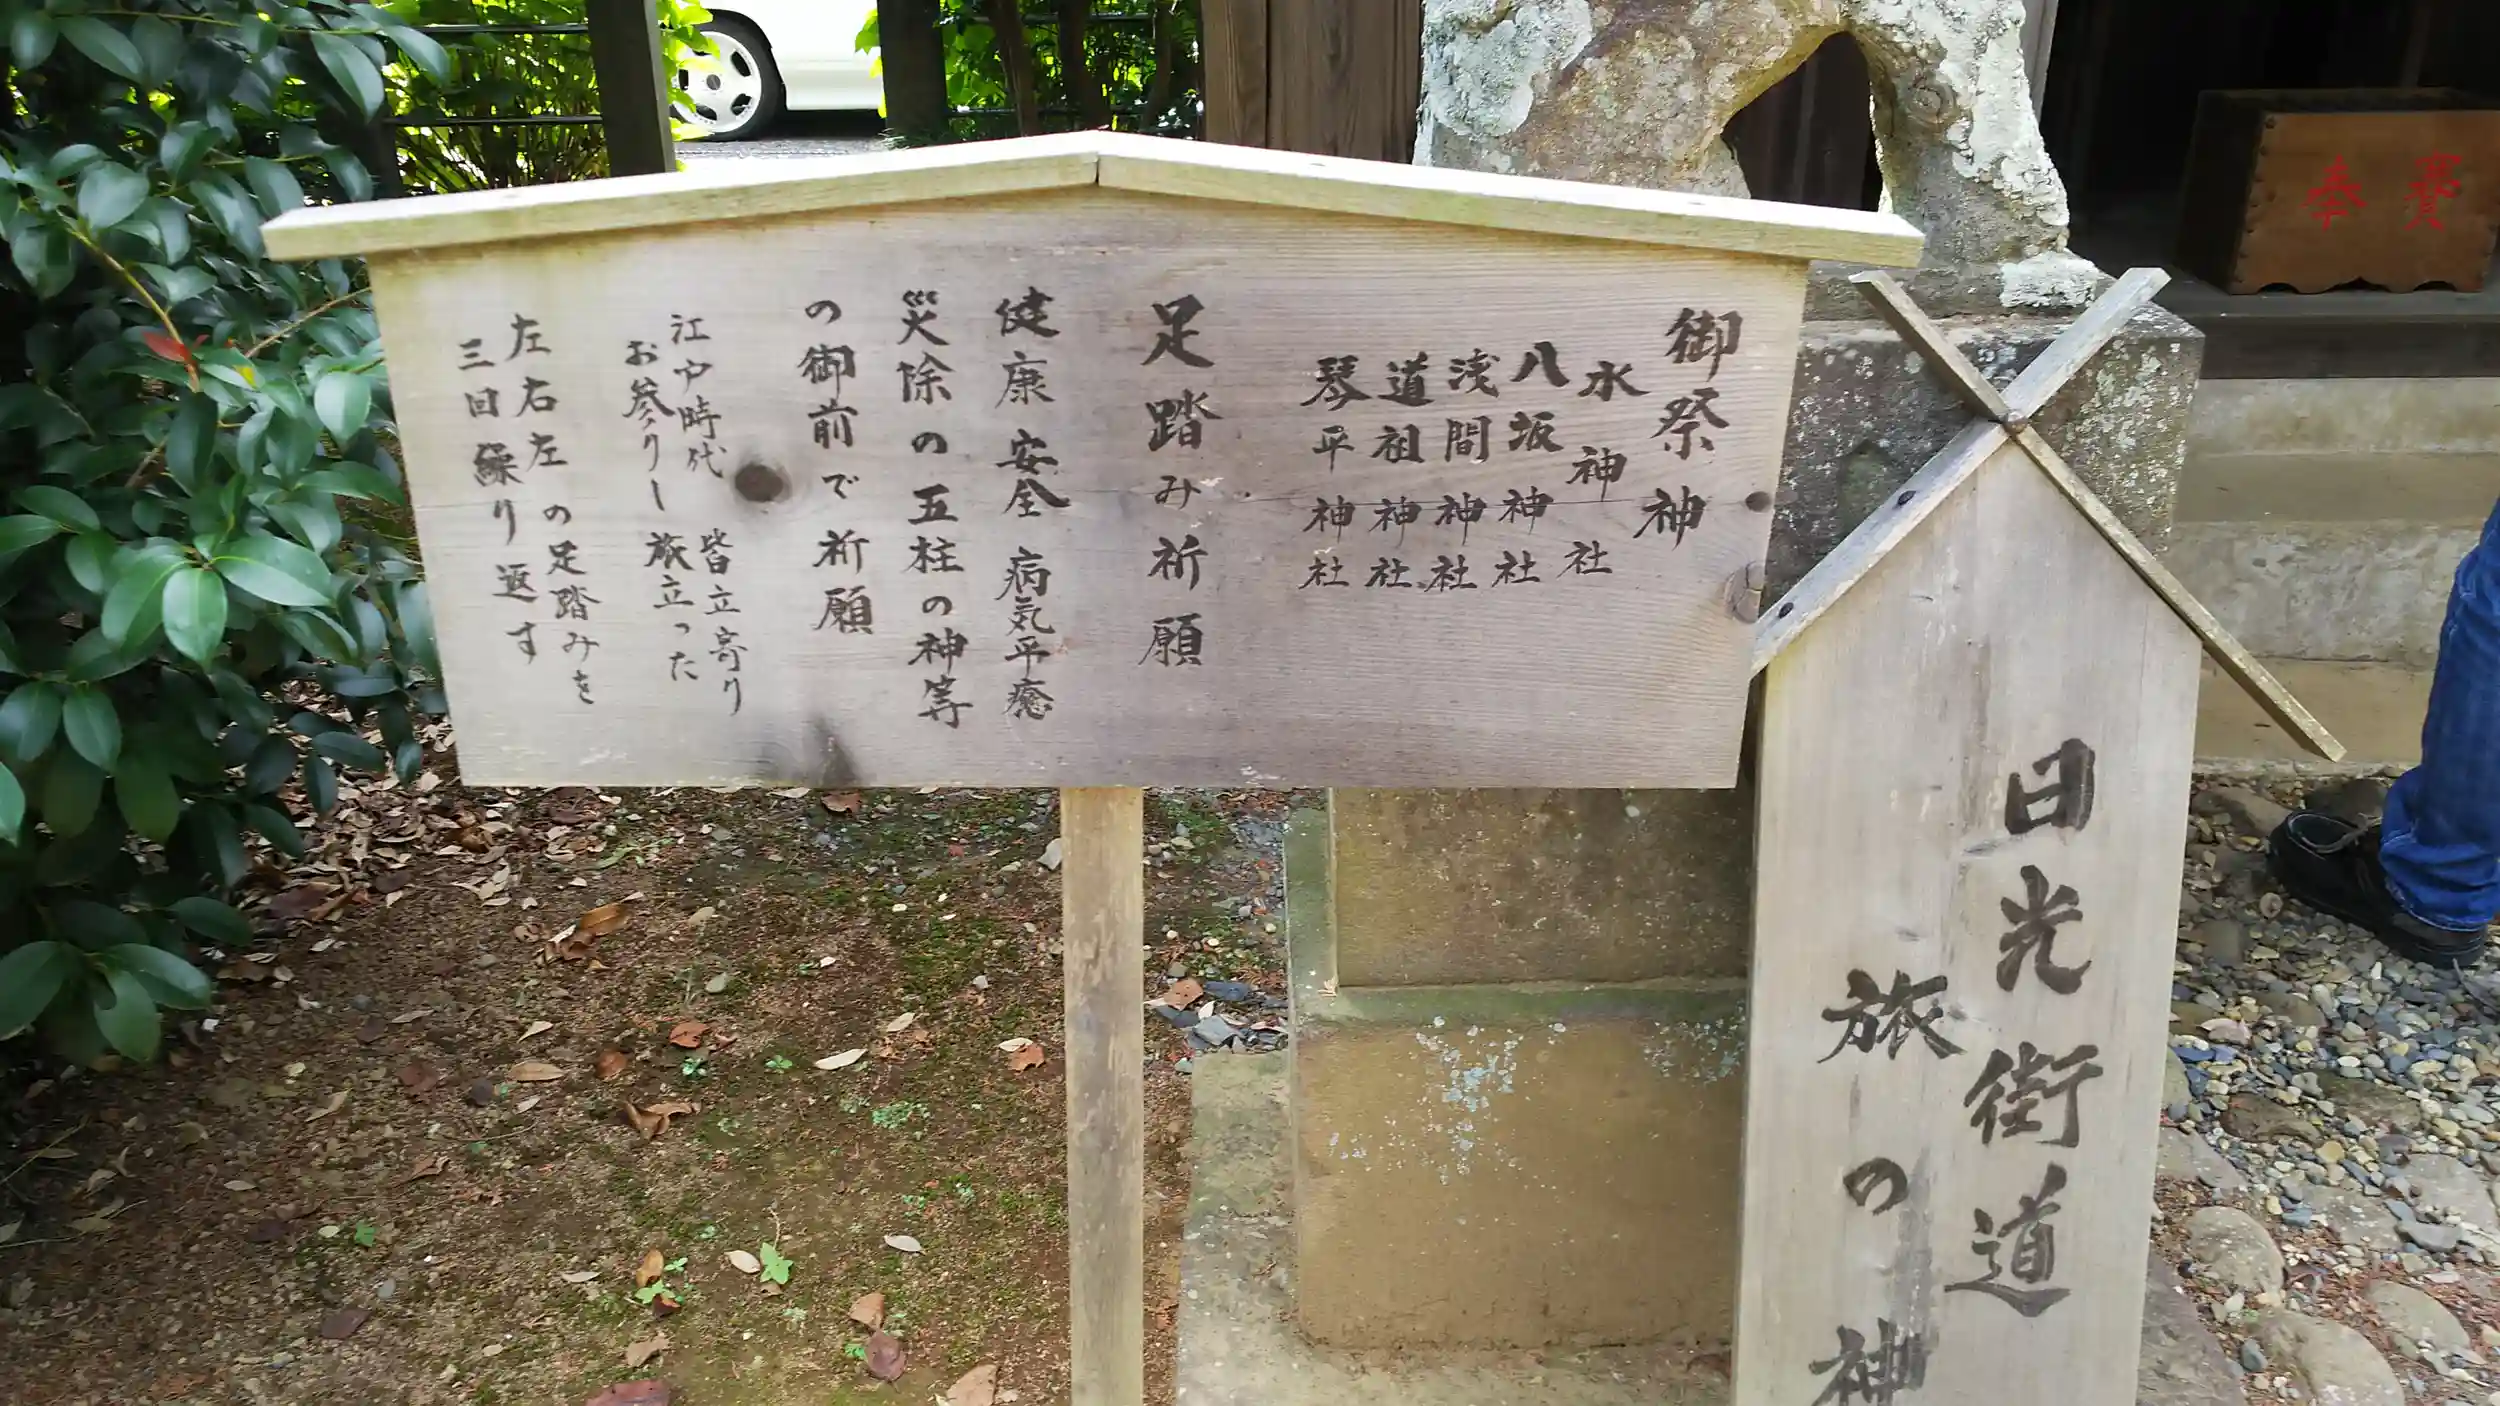 御祭神
水神社
八坂神社
浅間神社
道祖神社
琴平神社
足踏み祈願
健康安全病気平癒
災除の五柱の神等
の御前で祈願
江戸時代 皆立寄り
お参りし旅立った
左右左の足踏みを
三回繰り返す
日光街道
旅の神
奉
賽